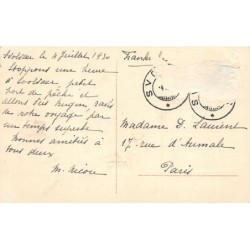 Svolvaer le 4 Juillet 1930
Stoppons une heure
à Svolvaer petit
port de pêche et
allons très ravis
de notre voyage par
un temps superbe
Bonnes amitiés à
tous deux
M. Nicou
SVO
Madame D. Laurent
17 rue d'Aumale
Paris